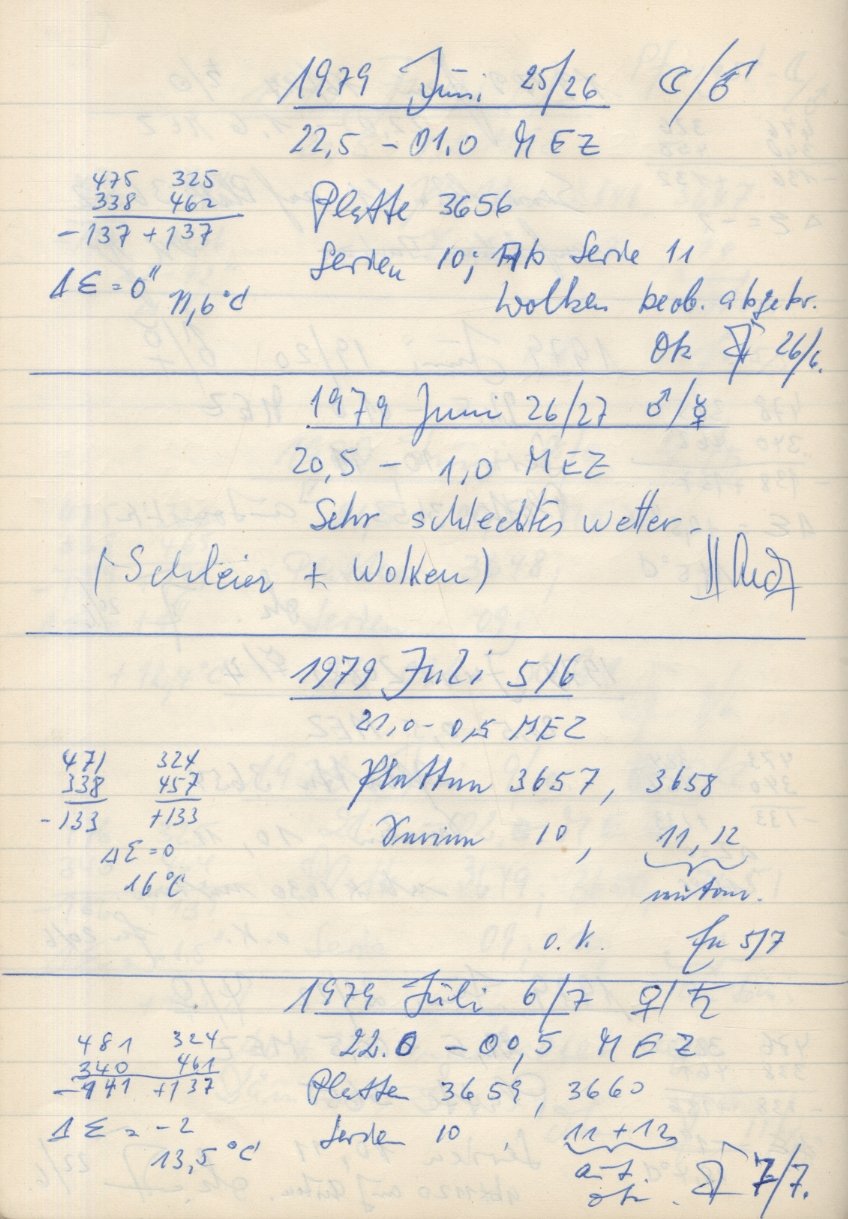 1979 Juni 25/26 ☾/♂
22,5 – 01,0 MEZ
475 325
338 462
–137 +137
Platte 3656
Serien 10; Ab Serie 11
Δε = 0" 11,6 °C
Wolken beob. abgebr.
Ok 26/6.
1979 Juni 26/27 ♂/☿
20,5 – 1,0 MEZ
Sehr schlechtes Wetter
(Schleier + Wolken)
1979 Juli 5/6
21,0 – 0,5 MEZ
471 324
338 457
–133 +133
Platten 3657, 3658
Serien 10, 11, 12
Δε = 0
16 °C
autom.
o.k. 5/7
1979 Juli 6/7 ♀/♄
22.0 – 00,5 MEZ
481 324
340 461
–141 +137
Platten 3659, 3660
Serien 10 11 + 12
Δε = –2
13,5 °C
aut.
ok. 7/7.